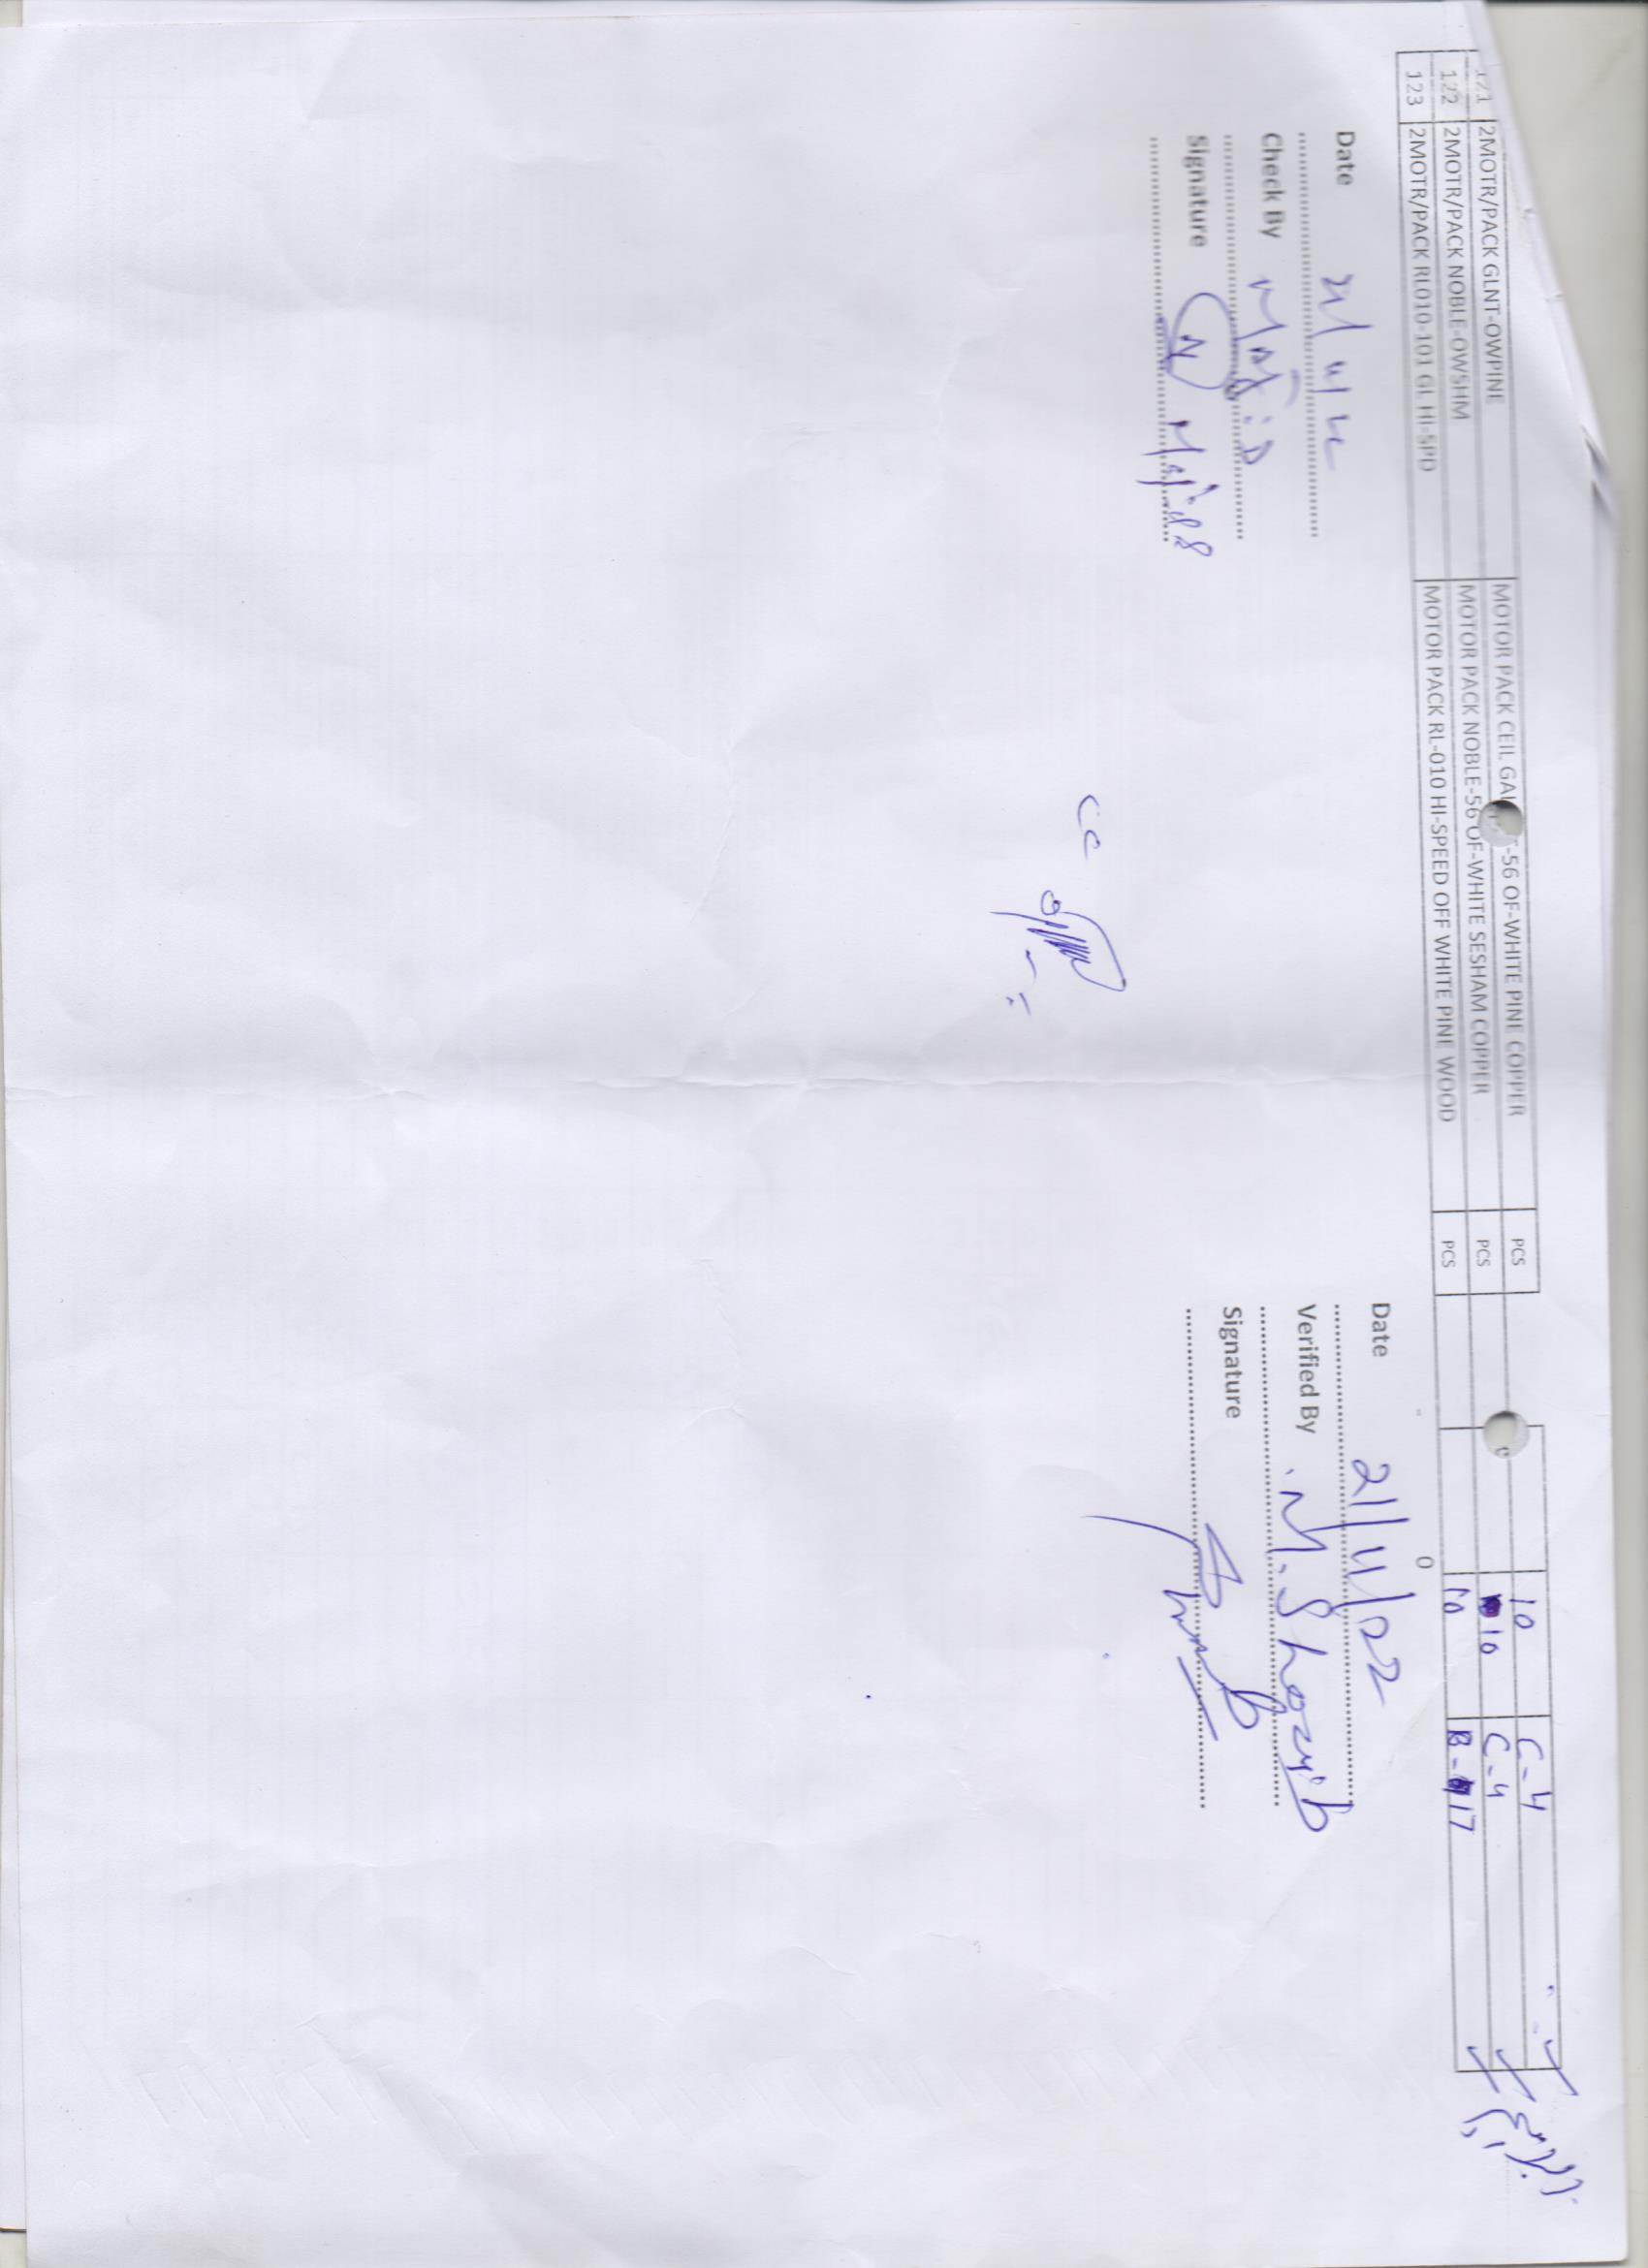 121 2MOTR/PACK GLNT-OWPINE MOTOR PACK CEIL GAL -56 OF-WHITE PINE COPPER PCS 10 C-4
122 2MOTR/PACK NOBLE-OWSHM MOTOR PACK NOBLE-56 OF-WHITE SESHAM COPPER PCS 10 C-4
123 2MOTR/PACK RL010-101 GL HI-SPD MOTOR PACK RL-010 HI-SPEED OFF WHITE PINE WOOD PCS 10 B-17
0
Date Date 21/11/22
Check By Majid Verified By M. Shozyib
Signature Majid Signature
CC